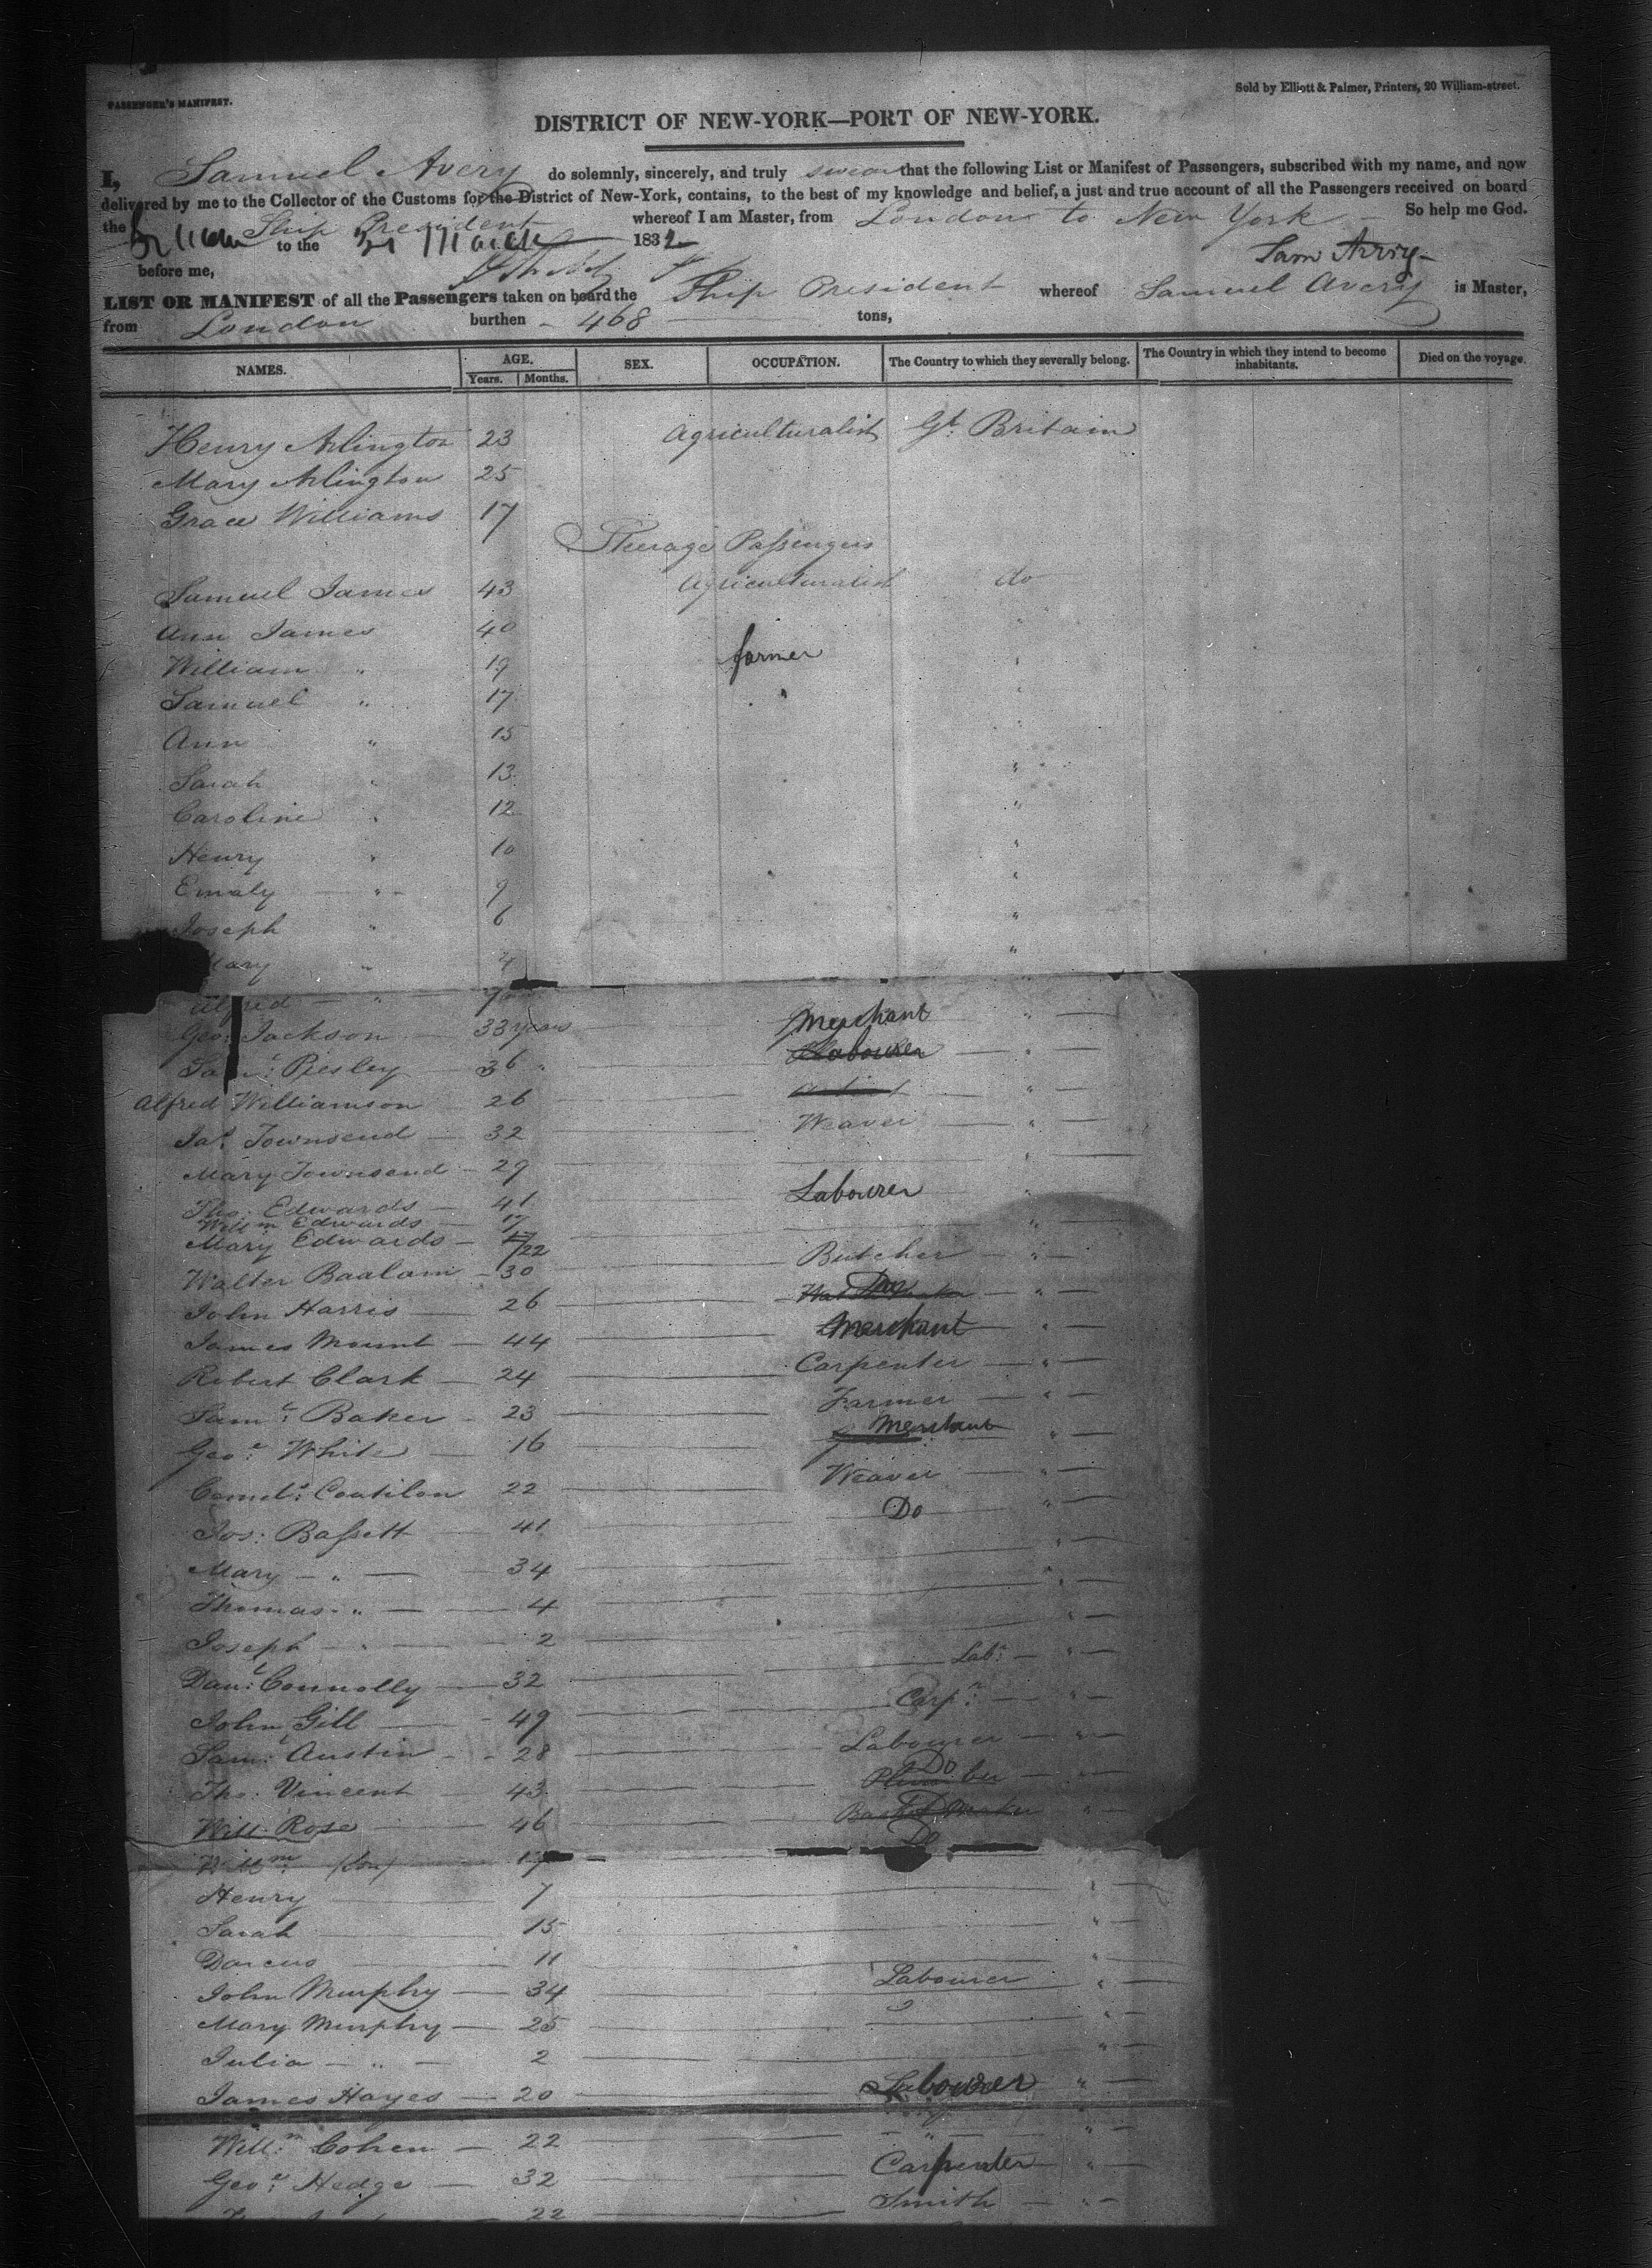 PASSENGER'S MANIFEST.
Sold by Elliott & Palmer, Printers, 20 William-street.
DISTRICT OF NEW-YORK—PORT OF NEW-YORK.
I, Samuel Avery do solemnly, sincerely, and truly swear that the following List or Manifest of Passengers, subscribed with my name, and now
delivered by me to the Collector of the Customs for the District of New-York, contains, to the best of my knowledge and belief, a just and true account of all the Passengers received on board
the Ship President whereof I am Master, from London to New York So help me God.
to the March 1832 Sam Avery
before me,
LIST OR MANIFEST of all the Passengers taken on board the Ship President whereof Samuel Avery is Master,
from London burthen 468 tons,
NAMES. AGE. Years. Months. SEX. OCCUPATION. The Country to which they severally belong. The Country in which they intend to become inhabitants. Died on the voyage.
Henry Arlington 23 Agriculturalist Gt. Britain
Mary Arlington 25
Grace Williams 17
Steerage Passengers
Samuel James 43 Agriculturalist do
Ann James 40 "
William " 19 farmer "
Samuel " 17 " "
Ann " 15 "
Sarah " 13 "
Caroline " 12 "
Henry " 10 "
Emaly " 9 "
Joseph " 6 "
Mary " 4 "
Alfred "
Geo: Jackson 33 years Merchant "
Saml: Piesley 36 " Labourer "
Alfred Williamson 26 "
Jas. Townsend 32 Weaver "
Mary Townsend 29 "
Tho: Edwards 41 Labourer "
Willm Edwards 17
Mary Edwards 22 "
Walter Baalam 30 Butcher "
John Harris 26 "
James Mount 44 Merchant "
Robert Clark 24 Carpenter "
Saml: Baker 23 Farmer "
Geo: White 16 Merchant "
22 Weaver "
Jos: Bassett 41 Do "
Mary " 34 "
Thomas " 4 "
Joseph " 2 "
Danl: Connolly 32 Labr: "
John Gill 49 Carpr: "
Saml: Austin 28 Labourer "
Tho: Vincent 43 Plumber Do "
Will: Rose 46 Basket Maker Do "
Willm: (Son) 17 Do
Henry 7 "
Sarah 15 "
Darcus 11 "
John Murphy 34 Labourer "
Mary Murphy 25 "
Julia " 2 "
James Hayes 20 Labourer "
Willm: Cohen 22 " "
Geo: Hedge 32 Carpenter "
22 Smith "